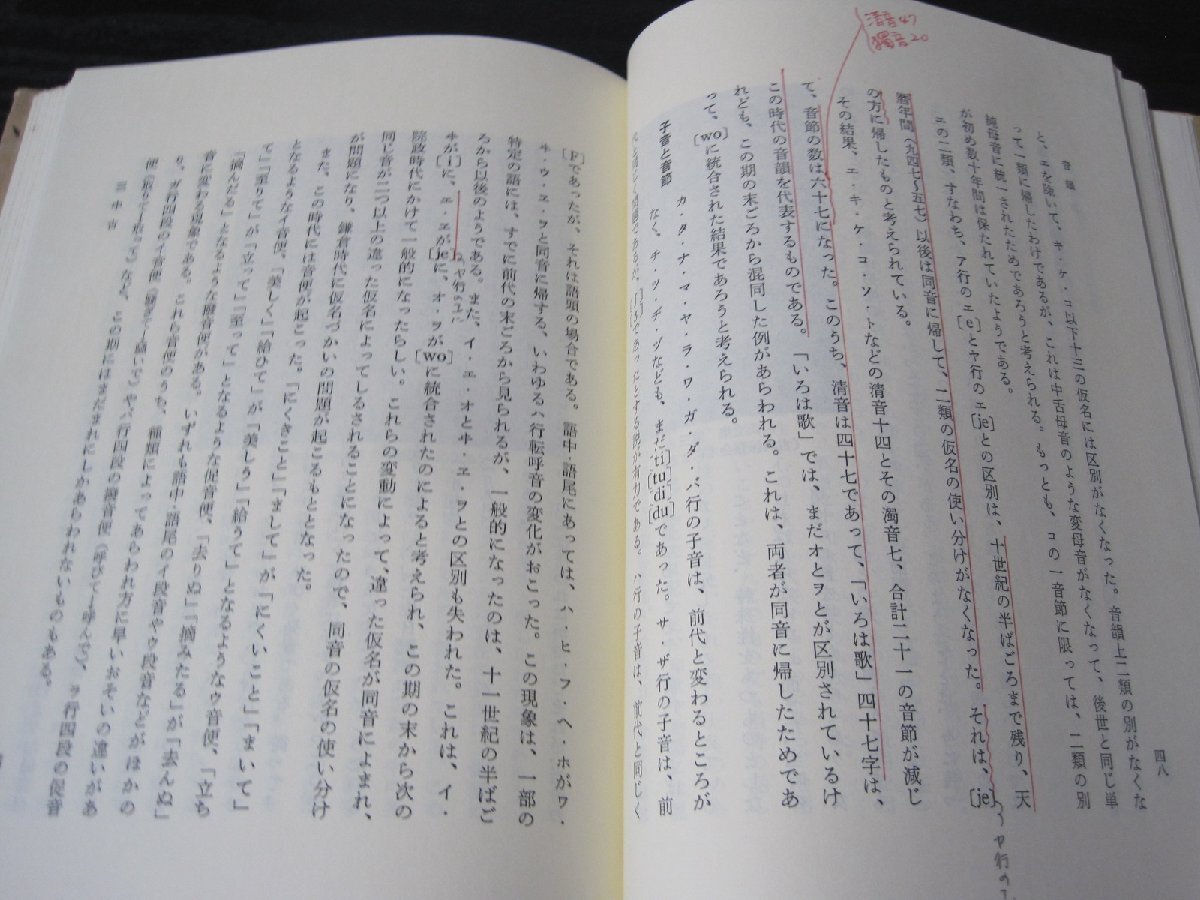 清音47
濁音20
四八
音韻
と、エを除いて、キ・ケ・コ以下十三の仮名には区別がなくなった。音韻上二類の別がなくな
って一類に帰したわけであるが、これは中古母音のような変母音がなくなって、後世と同じ単
純母音に統一されたためであろうと考えられる。もっとも、コの一音節に限っては、二類の別
が初め数十年間は保たれていたようである。
エの二類、すなわち、ア行のエ[e]とヤ行のエ[je]との区別は、十世紀の半ばごろまで残り、天
暦年間（九四七〜五七）以後は同音に帰して、二類の仮名の使い分けがなくなった。それは、[je]
の方に帰したものと考えられている。
その結果、エ・キ・ケ・コ・ソ・トなどの清音十四とその濁音七、合計二十一の音節が減じ
て、音節の数は六十七になった。このうち、清音は四十七であって、「いろは歌」四十七字は、
この時代の音韻を代表するものである。「いろは歌」では、まだオとヲとが区別されているけ
れども、この期の末ごろから混同した例があらわれる。これは、両者が同音に帰したためであ
って、[wo]に統合された結果であろうと考えられる。
子音と音節
カ・タ・ナ・マ・ヤ・ラ・ワ・ガ・ダ・バ行の子音は、前代と変わるところが
なく、チ・ツ・ヂ・ヅなども、まだ[ti][tu][di][du]であった。サ・ザ行の子音は、前
ヤ行の
[F]であったが、それは語頭の場合である。語中・語尾にあっては、ハ・ヒ・フ・ヘ・ホがワ・
ヰ・ウ・ヱ・ヲと同音に帰する、いわゆるハ行転呼音の変化がおこった。この現象は、一部の
特定の語には、すでに前代の末ごろから見られるが、一般的になったのは、十一世紀の半ばご
ろから以後のようである。また、イ・エ・オとヰ・ヱ・ヲとの区別も失われた。これは、イ・
ヰが[i]に、エ・ヱが[je]に、オ・ヲが[wo]に統合されたのによると考えられ、この期の末から次の
ヤ行のエに
院政時代にかけて一般的になったらしい。これらの変動によって、違った仮名が同音によまれ、
同じ音が二つ以上の違った仮名によってしるされることになったので、同音の仮名の使い分け
が問題になり、鎌倉時代に仮名づかいの問題が起こるもととなった。
また、この時代には音便が起こった。「にくきこと」「まして」が「にくいこと」「まいて」
となるようなイ音便、「美しく」「給ひて」が「美しう」「給うて」となるようなウ音便、「立ち
て」「至りて」が「立って」「至って」となるような促音便、「去りぬ」「摘みたる」が「去んぬ」
「摘んだる」となるような撥音便がある。いずれも語中・語尾のイ段音やウ段音などがほかの
音に変わる現象である。これら音便のうち、種類によってあらわれ方に早いおそいの違いがあ
り、ガ行四段のイ音便
バ行四段の撥音便（呼びて→呼んで）、ラ行四段の促音
便
など、この期にはまだまれにしかあらわれないものもある。
三 中古